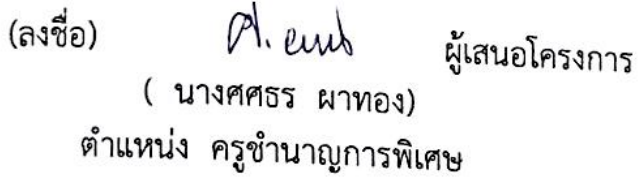 (ลงชื่อ) ผู้เสนอโครงการ
( นางศศธร ผาทอง)
ตำแหน่ง ครูชำนาญการพิเศษ